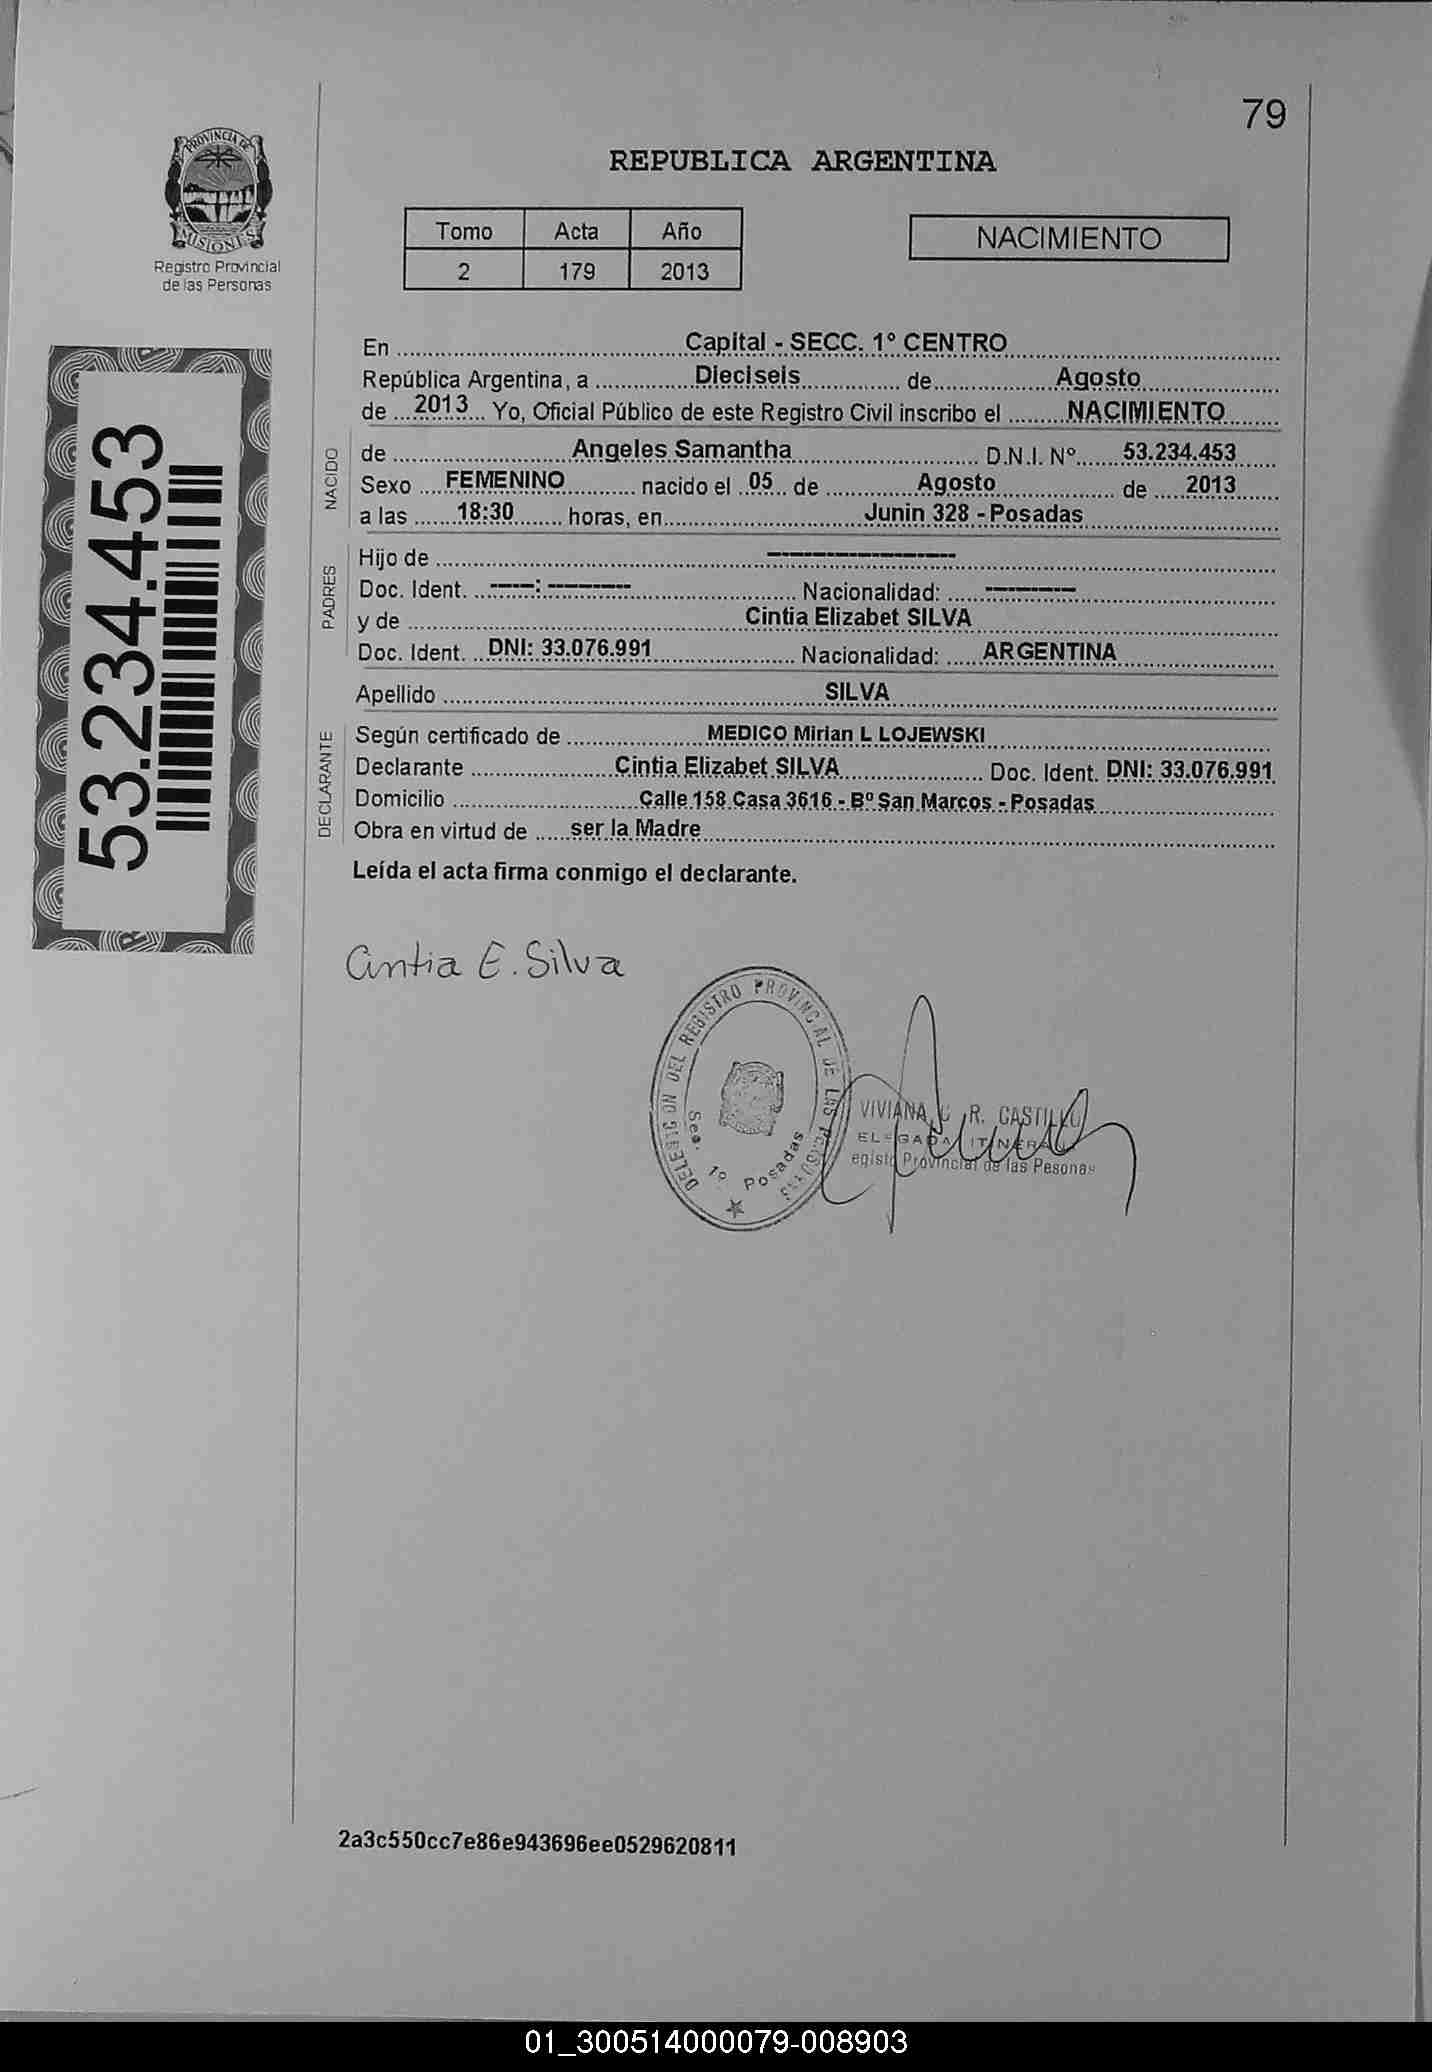 79
PROVINCIA DE
MISIONES
Registro Provincial
de las Personas
REPUBLICA ARGENTINA
Tomo Acta Año
2 179 2013
NACIMIENTO
53.234.453
En Capital - SECC. 1º CENTRO
República Argentina, a Dieciseis de Agosto
de 2013 Yo, Oficial Público de este Registro Civil inscribo el NACIMIENTO
NACIDO
de Angeles Samantha D.N.I. Nº 53.234.453
Sexo FEMENINO nacido el 05 de Agosto de 2013
a las 18:30 horas, en Junin 328 - Posadas
PADRES
Hijo de --------------------
Doc. Ident. -----: --------- Nacionalidad: ----------
y de Cintia Elizabet SILVA
Doc. Ident. DNI: 33.076.991 Nacionalidad: ARGENTINA
Apellido SILVA
DECLARANTE
Según certificado de MEDICO Mirian L LOJEWSKI
Declarante Cintia Elizabet SILVA Doc. Ident. DNI: 33.076.991
Domicilio Calle 158 Casa 3616 - Bº San Marcos - Posadas
Obra en virtud de ser la Madre
Leída el acta firma conmigo el declarante.
Cintia E. Silva
DELEGACION DEL REGISTRO PROVINCIAL DE LAS
Sec. 1º Posadas
VIVIANA R. CASTILLO
Provincial de las Pesonas
2a3c550cc7e86e943696ee0529620811
01_300514000079-008903